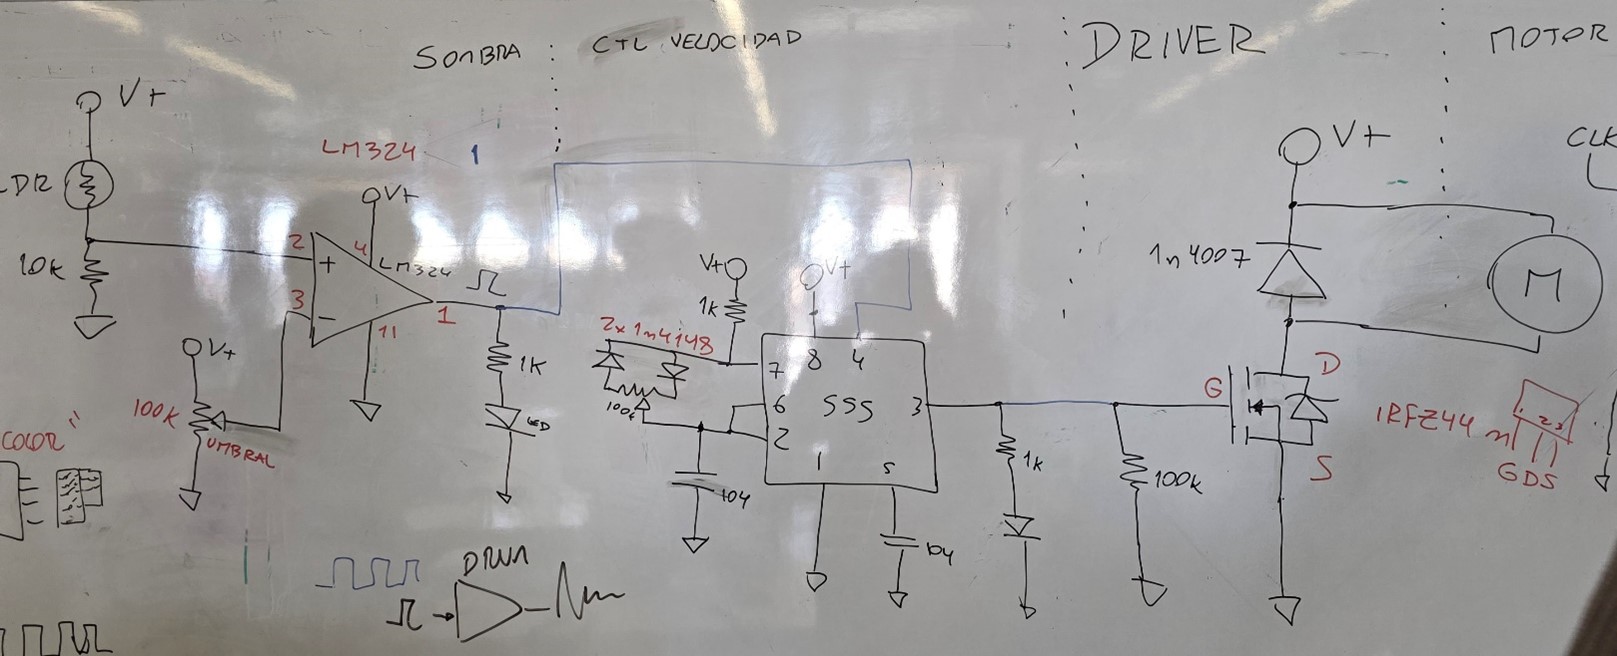 SOMBRA
CTL VELOCIDAD
DRIVER
MOTOR
V+
LDR
10K
LM324
1
V+
2
+
4
LM324
3
-
11
1
V+
100K
UMBRAL
1K
LED
COLOR"
V+
1K
V+
2x 1n4148
100K
7
8
4
6
555
3
2
1
5
104
104
1K
100K
V+
1n4007
M
CLK
G
D
S
IRFZ44 n
GDS